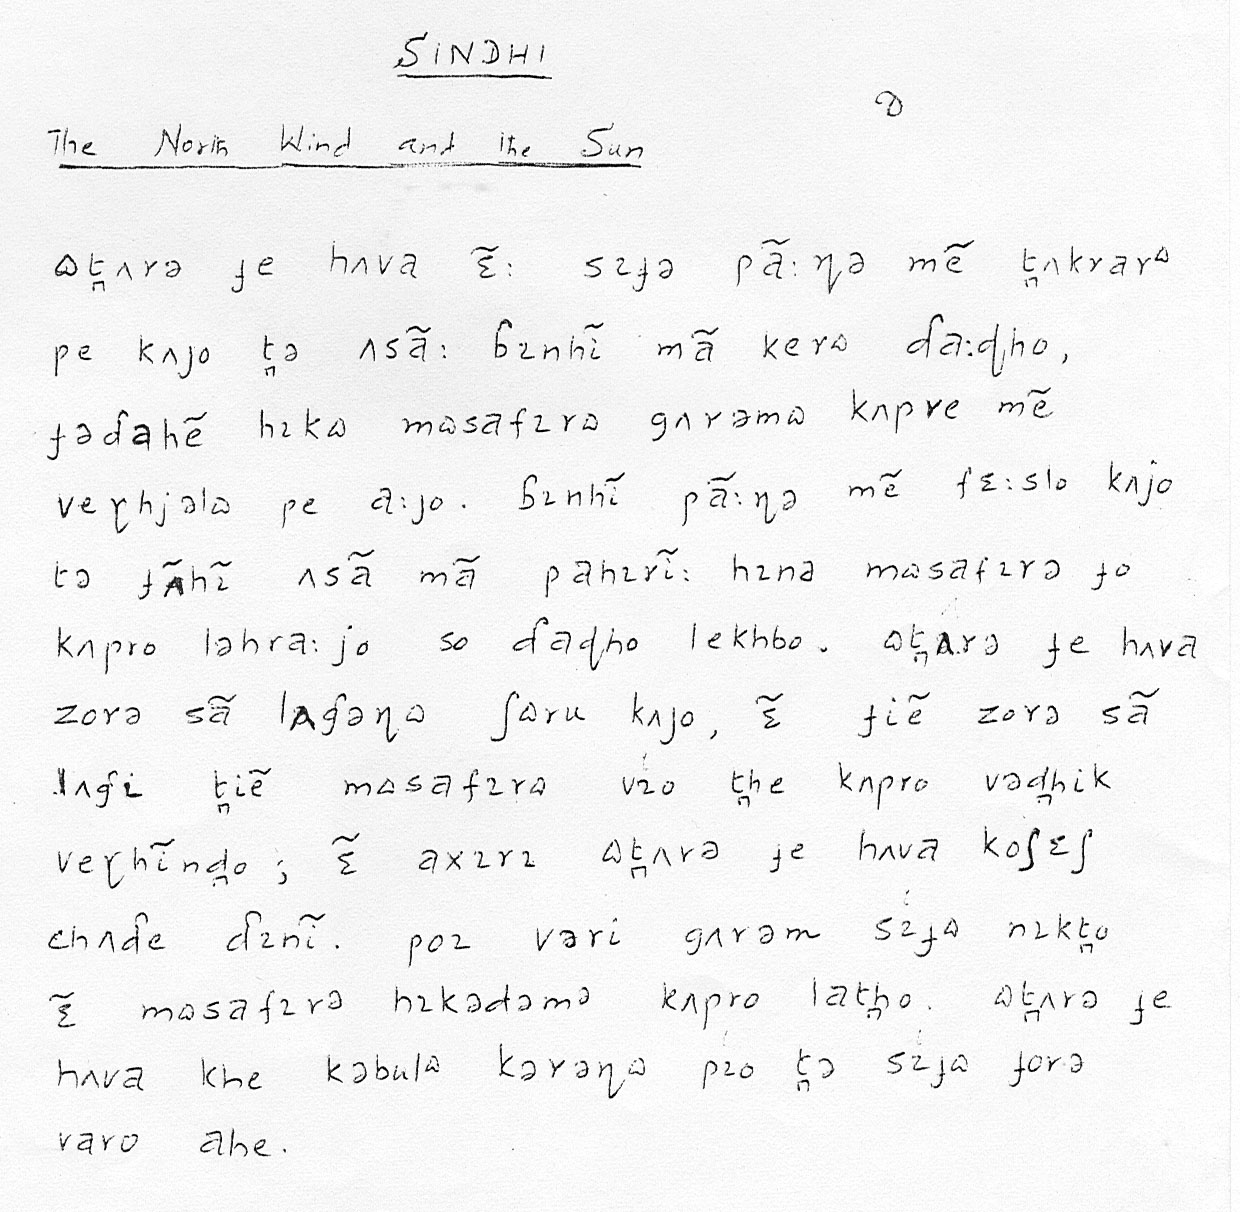 SINDHI
ɷ
The North Wind and the Sun
ɷt̪ʌrə ɟe hʌva ɛ̃ː sɪɟə pãːɳə mẽ t̪ʌkrarɷ
pe kʌjo t̪ə ʌsãː ɓɪnhĩ mã kerɷ ɗaːɖho,
ɟəɗahẽ hɪkɷ mɷsafɪrɷ gʌrəmɷ kʌpre mẽ
veɽhjəlɷ pe aːjo. ɓɪnhĩ pãːɳə mẽ fɛːslo kʌjo
tə ɟʌ̃hĩ ʌsã mã pahɪrĩː hɪnə mɷsafɪrə ɟo
kʌpro ləhraːjo so ɗaɖho lekhbo. ɷt̪ʌrə ɟe hʌva
zorə sã lʌɠəɳɷ ʃɷru kʌjo, ɛ̃ ɟiẽ zorə sã
lʌɠɪ t̪iẽ mɷsafɪrɷ vɪo t̪he kʌpro vəd̪hik
veɽhĩnd̪o; ɛ̃ axɪrɪ ɷt̪ʌrə ɟe hʌva koʃɛʃ
chʌɗe ɗɪnĩ. poɪ vəri gʌrəm sɪɟɷ nɪkt̪o
ɛ̃ mɷsafɪrə hɪkədəmə kʌpro lat̪ho. ɷt̪ʌrə ɟe
hʌva khe kəbulɷ kərəɳɷ pɪo t̪ə sɪɟɷ ɟorə
varo ahe.